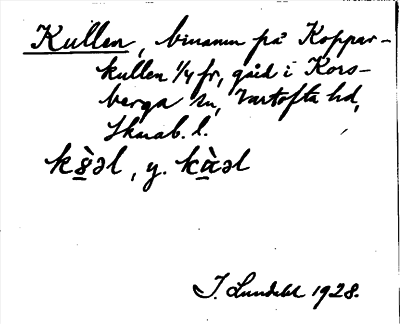 Kullen, binamn på Koppar-
kullen 1/4 fr, gård i Kors-
berga sn, Vartofta hd,
Skarab. l.
ks̀əl, y. kàəl
J. Lundahl 1928.